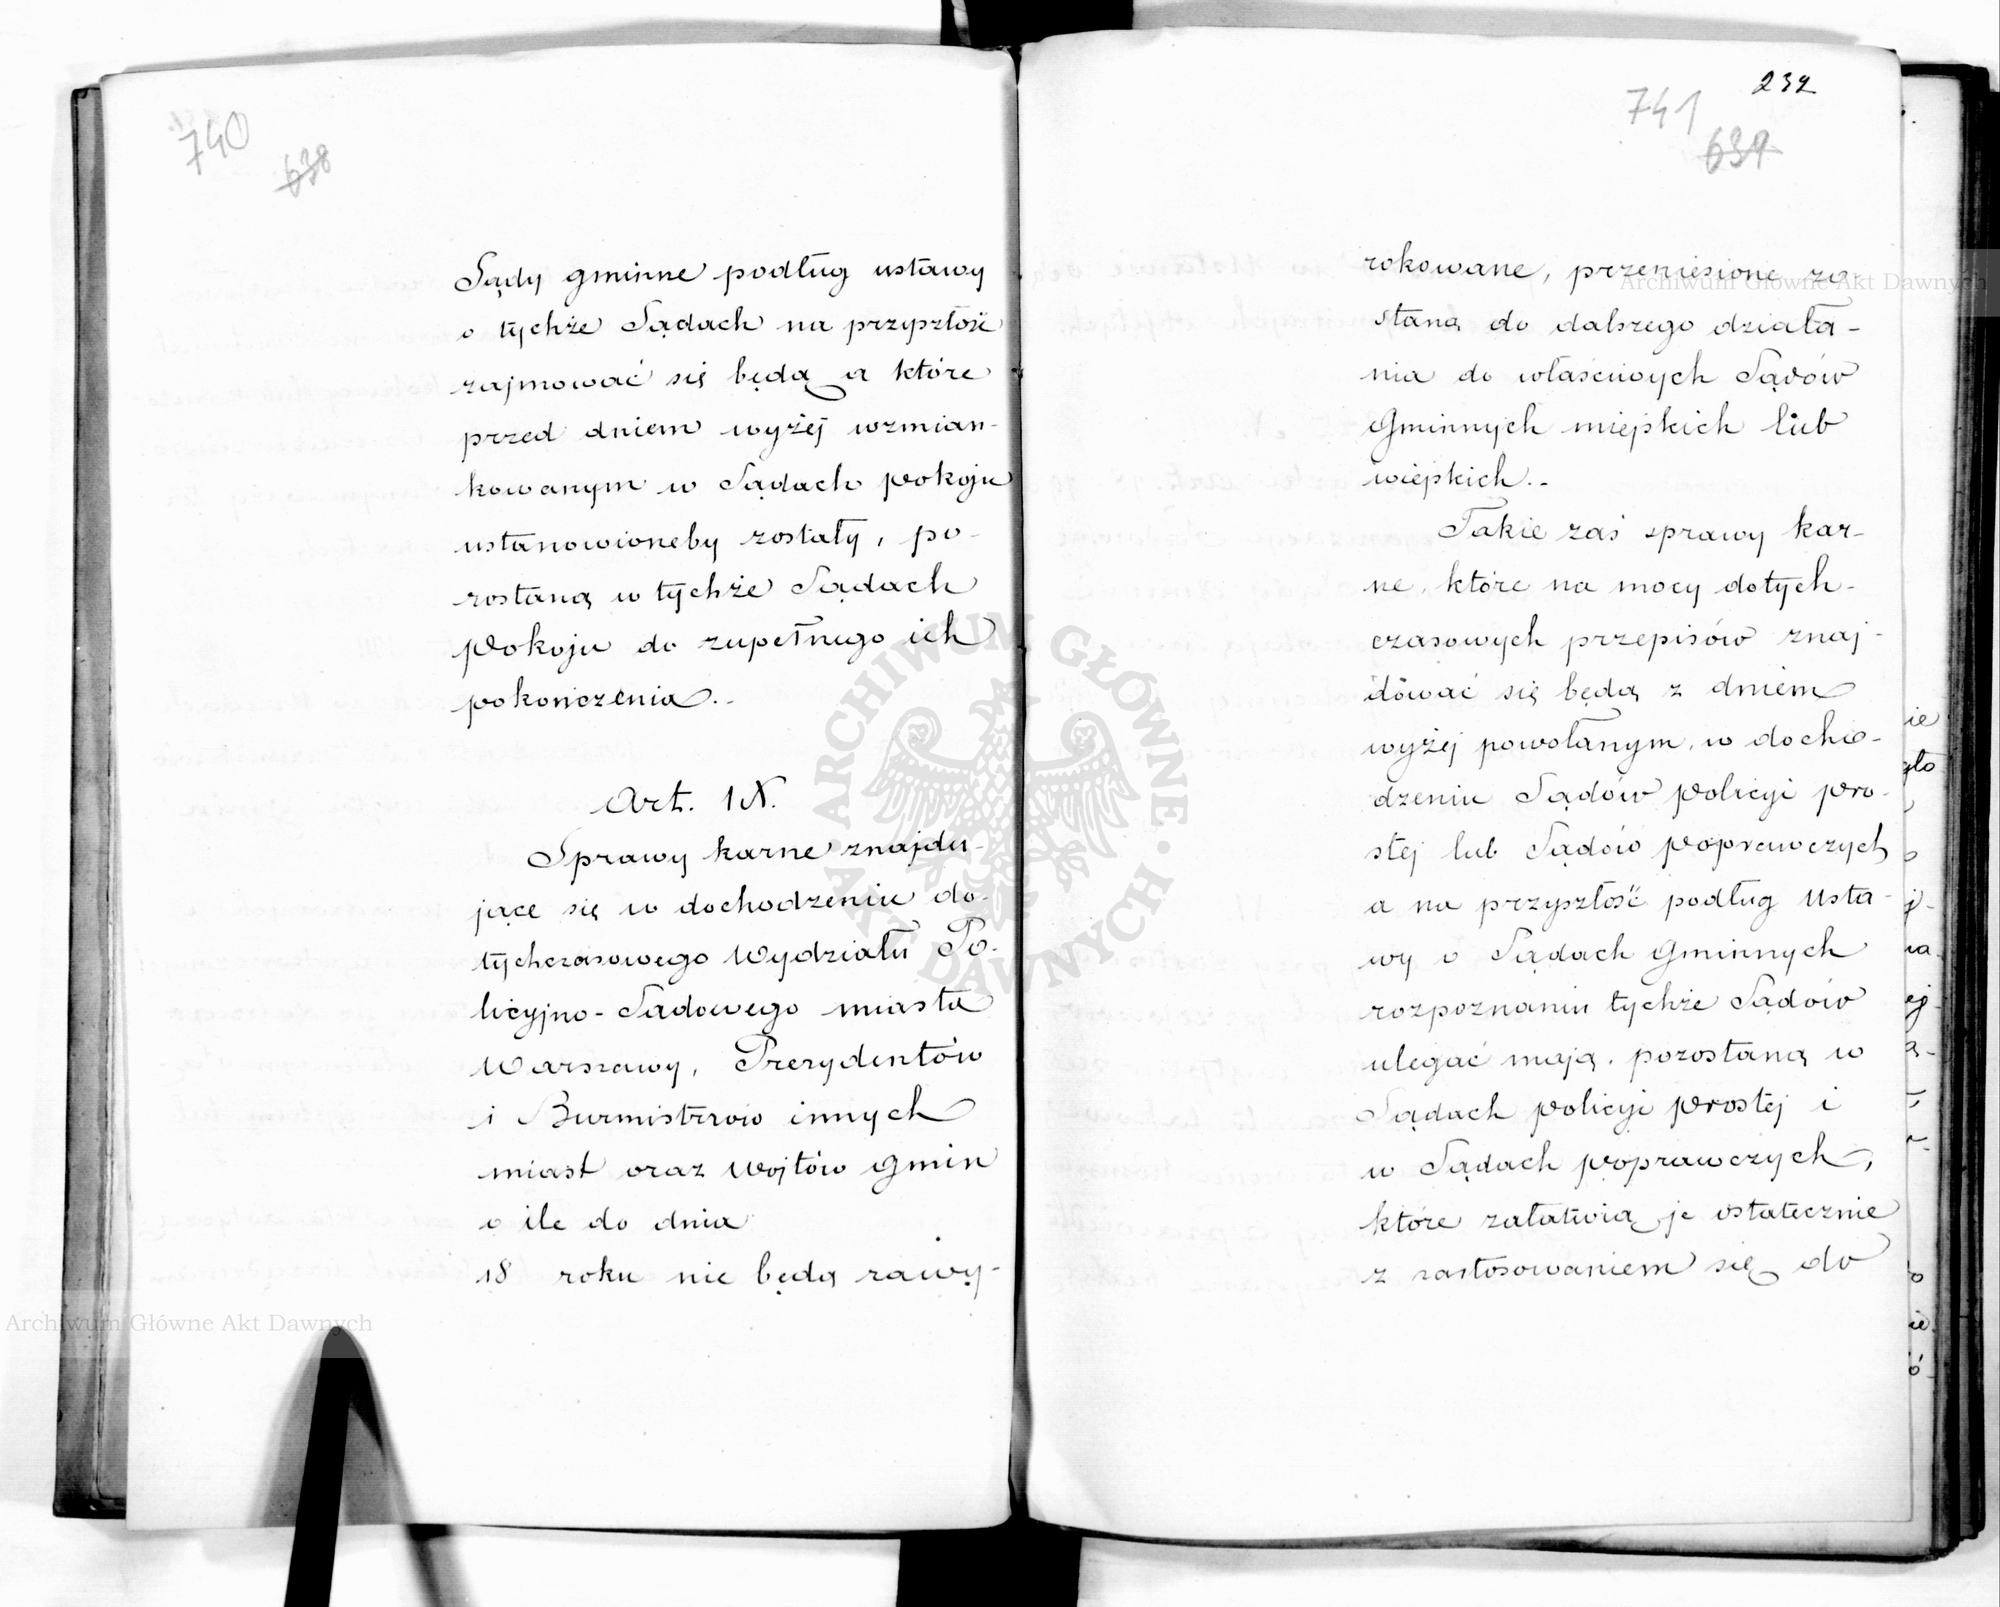 740
638
Sądy gminne podług ustawy
o tychże Sądach na przyszłość
zajmować się będą a które
przed dniem wyżej wzmian-
kowanym w Sądach Pokoju
ustanowioneby zostały, po-
zostaną w tychże Sądach
Pokoju do zupełnego ich
pokończenia.-
Art. IX.
Sprawy karne znajdu-
jące się w dochodzeniu do-
tychczasowego Wydziału Po-
licyjno-Sądowego miasta
Warszawy, Prezydentów
i Burmistrzów innych
miast oraz Wojtów Gmin
o ile do dnia
18 roku nie będą zawy-
232
741
639
rokowane, przeniesione zo
staną do dalszego działa-
nia do właściwych Sądów
Gminnych miejskich lub
wiejskich.-
Takie zaś sprawy kar-
ne, które na mocy dotych-
czasowych przepisów znaj-
dować się będą z dniem
wyżej powołanym, w docho-
dzeniu Sądów Policyi Pro-
stej lub Sądów Poprawczych
a na przyszłość podług Usta-
wy o Sądach Gminnych
rozpoznaniu tychże Sądów
ulegać mają, pozostaną w
Sądach Policyi Prostej i
w Sądach Poprawczych,
które załatwią je ostatecznie
z zastosowaniem się do
Archiwum Główne Akt Dawnych
Archiwum Główne Akt Dawnych
ARCHIWUM GŁÓWNE
AKT DAWNYCH